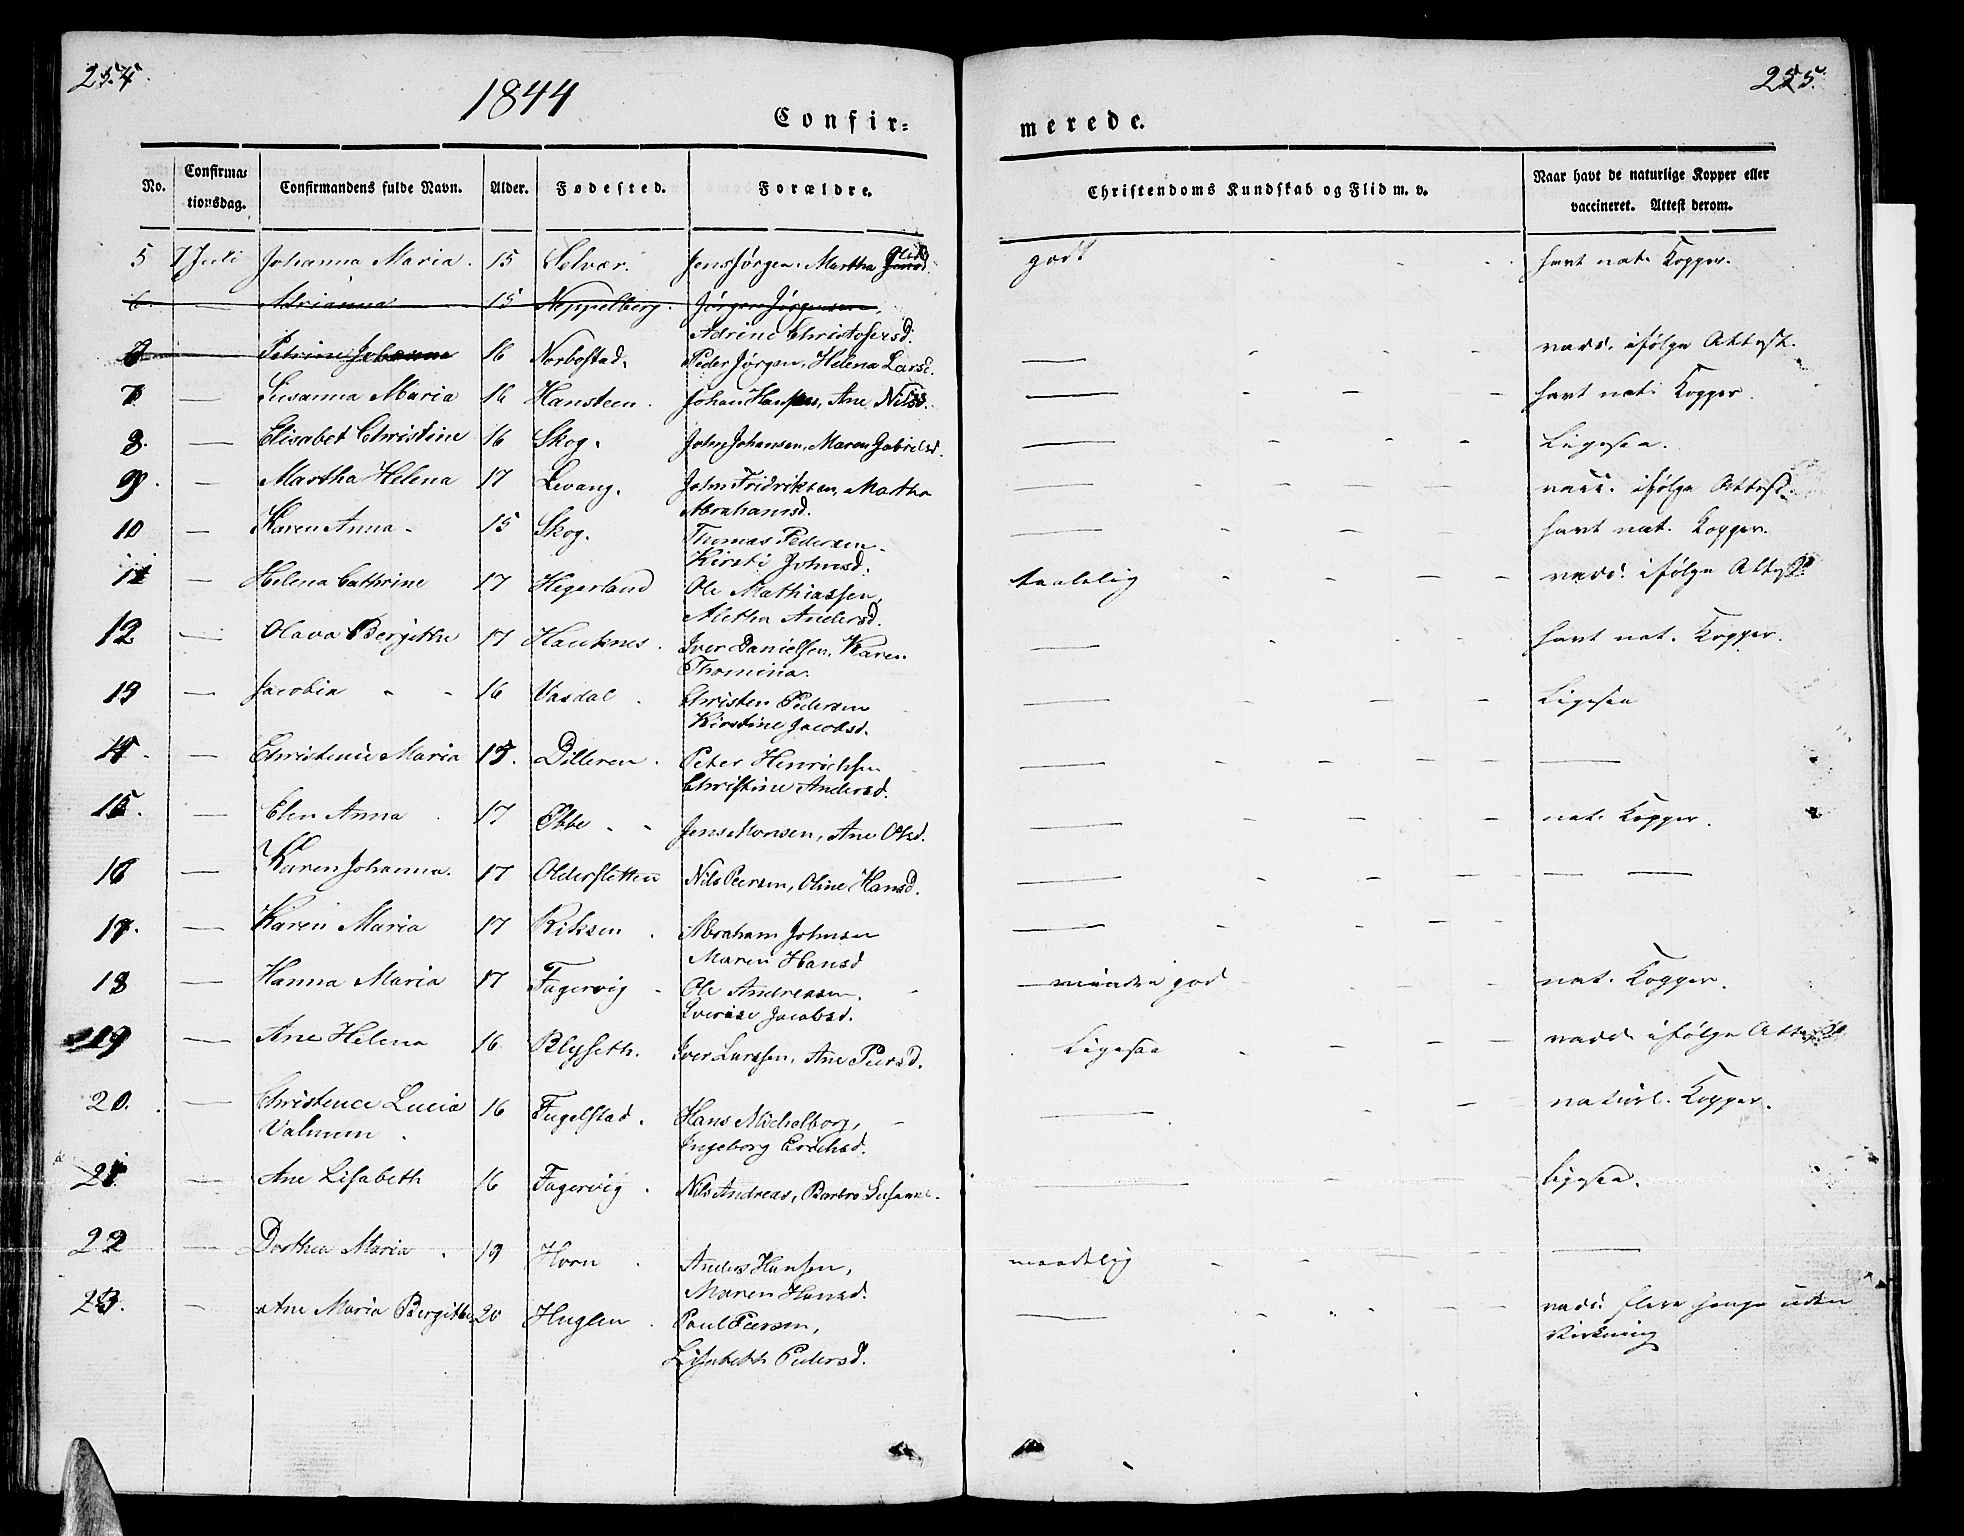 254.
1844
Confir-
merede.
255.
No.
Confirma-
tionsdag.
Confirmandens fulde Navn.
Alder.
Fødested.
Forældre.
Christendoms Kundskab og Flid m. v.
Naar havt de naturlige Kopper eller
vaccineret. Attest derom.
5 7 Juli Johanna Maria. 15 Selvær. Jens Jørgen. Martha godt havt nat. Kopper.
6. — Adrianna 15 Neppelberg. Jørgen Jørgensen,
Adrine Christofersd.
— Petrine Johanna 16 Norbostad. Peder Jørgen, Helena Larsd. — vacc. ifølge Attest.
7 — Susanna Maria 16 Hansteen. Johan Hansen, Ane Nilsd. — havt nat. Kopper.
8. — Elisabet Christine 16 Skog. John Johansen, Maren Gabrielsd. — Ligesaa.
9. — Martha Helena 17 Levang. John Fridriksen, Martha — vacc. ifølge Attest.
Abrahamsd.
10 — Karen Anna 15 Skog. Thomas Pedersen — havt nat. Kopper.
Kirsti Johnsd.
11 — Helena Cathrine 17 Hegerland Ole Mathiassen, taalelig vacc. ifølge Attest
Aletha Andersd.
12 — Olava Bergitte 17 Hauknes. Iver Danielsen, Karen — havt nat. Kopper.
Thomina.
13 — Jacobia 16 Vasdal. Christen Pedersen — Ligesaa
Kirstine Jacobsd.
14. — Christence Maria 15. Dilleren. Peter Henrichsen — —
Christine Andersd.
15. — Elen Anna 17 Ebbe Jens Monsen, Ane Olsd. — nat. Kopper.
16 — Karen Johanna. 17 Oldersletten Nils Peersen, Oline Hansd. — — —
17. — Karen Maria 17 Riksen. Abraham Johnsen —
Maren Hansd
18 — Hanna Maria 17 Fagervig Ole Andreasen. mindre god nat. Kopper.
Jacobsd.
19 — Ane Helena 16 Blyseth. Iver Larssen, Ane Peersd. Ligesaa vacc. ifølge Attest
20. — Christence Lucia 16 Fugelstad. Hans Michelborg, — naturl. Kopper.
Valnum. Ingeborg Erichsd.
21 — Ane Lisabeth 16 Fagervig. Nils Andreas, Barbro Susanne. — ligesaa.
22 — Dorthea Maria. 19 Horn. Anders Hansen, maadelig —
Maren Hansd.
23. — Ane Maria Bergitte 20 Huglen. Paul Peersen, — vacc. flere gange uden
Lisabeth Pedersd. Virkning